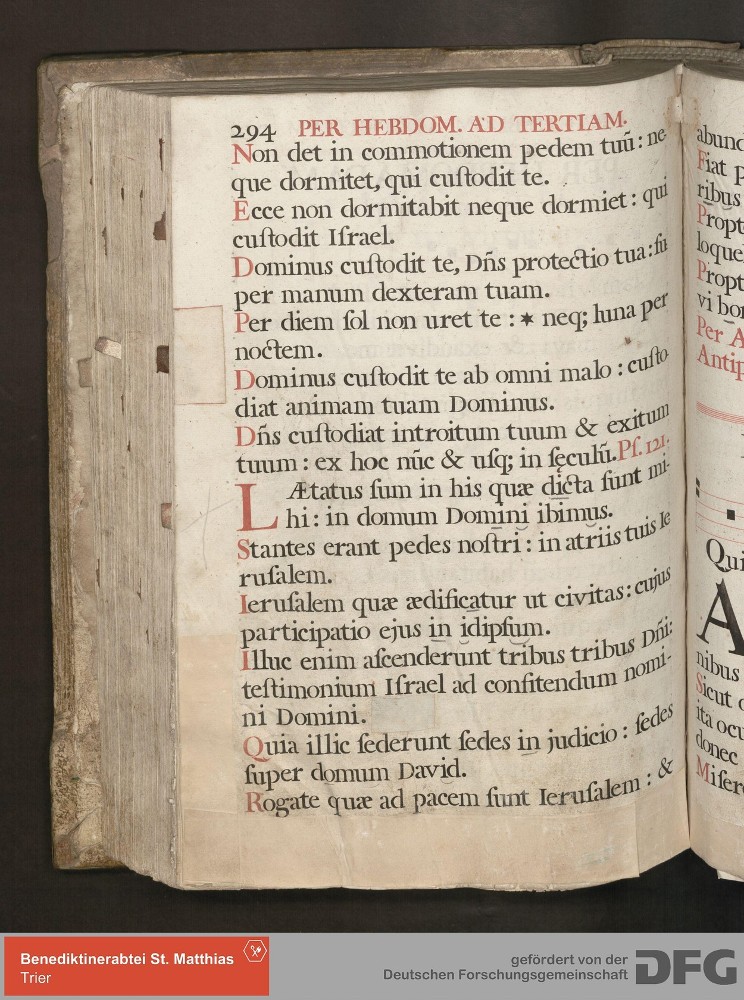 294 PER HEBDOM. AD TERTIAM.
Non det in commotionem pedem tuū: ne-
que dormitet, qui cuſtodit te.
Ecce non dormitabit neque dormiet: qui
cuſtodit Iſrael.
Dominus cuſtodit te, Dn̄s protectio tua: ſu
per manum dexteram tuam.
Per diem ſol non uret te: * neq; luna per
noctem.
Dominus cuſtodit te ab omni malo: cuſto-
diat animam tuam Dominus.
Dn̄s cuſtodiat introitum tuum & exitum
tuum: ex hoc nūc & uſq; in ſęculū. Pſ. 121.
LÆtatus ſum in his quæ dicta ſunt mi-
hi: in domum Domini ibimus.
Stantes erant pedes noſtri: in atriis tuis Ie
ruſalem.
Ieruſalem quæ ædificatur ut civitas: cujus
participatio ejus in idipſum.
Illuc enim aſcenderunt tribus tribus Dn̄i:
teſtimonium Iſrael ad confitendum nomi-
ni Domini.
Quia illic ſederunt ſedes in judicio: ſedes
ſuper domum David.
Rogate quæ ad pacem ſunt Ieruſalem: &
abund
Fiat p
ribus
Propt
loque
Propt
vi bon
Per A
Antip
Qui
A
nibus
Sicut o
ita ocu
donec
Miſere
Benediktinerabtei St. Matthias
Trier
gefördert von der
Deutschen Forschungsgemeinschaft
DFG